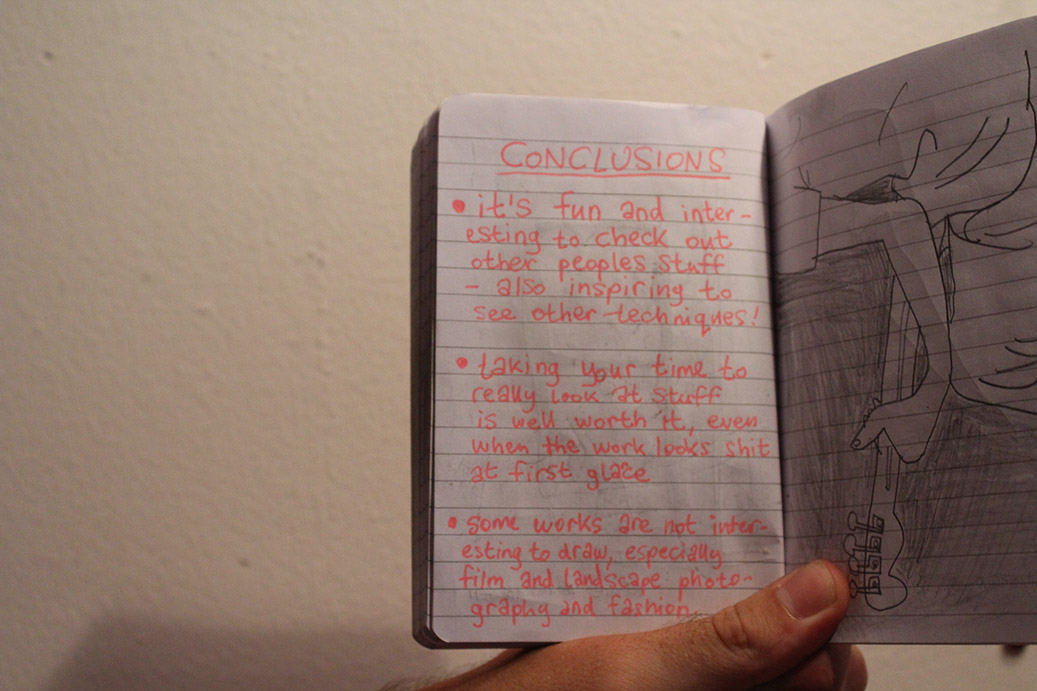 CONCLUSIONS
• it's fun and inter-
esting to check out
other peoples stuff
- also inspiring to
see other techniques!
• taking your time to
really look at stuff
is well worth it, even
when the work looks shit
at first glace
• some works are not inter-
esting to draw, especially
film and landscape photo-
graphy and fashion.